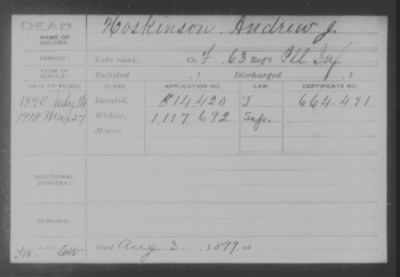 DEAD
NAME OF SOLDIER: Hoskinson Andrew J.
SERVICE: Late rank, Co. F. 63 Reg't Ill Inf
TERM OF SERVICE: Enlisted , 1 Discharged , 1
DATE OF FILING. CLASS. APPLICATION NO. LAW. CERTIFICATE NO.
1890 July 14 Invalid, 814,420 J 664.491
1918 Mar 27 Widow, 1,117,692
Minor,
ADDITIONAL SERVICES:
REMARKS:
Died Aug 3, 1899